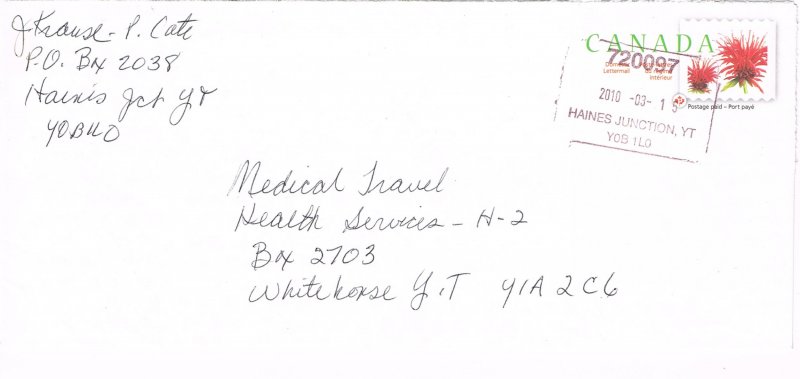 J Krause - P. Cate
P.O. Box 2038
Haines Jct YT
Y0B1L0
CANADA
720097
Domestic Lettermail
Poste-lettres du régime intérieur
2010 -03- 15
HAINES JUNCTION, YT
Y0B 1L0
Postage paid – Port payé
Medical Travel
Health Services - H-2
Box 2703
Whitehorse Y.T Y1A 2C6